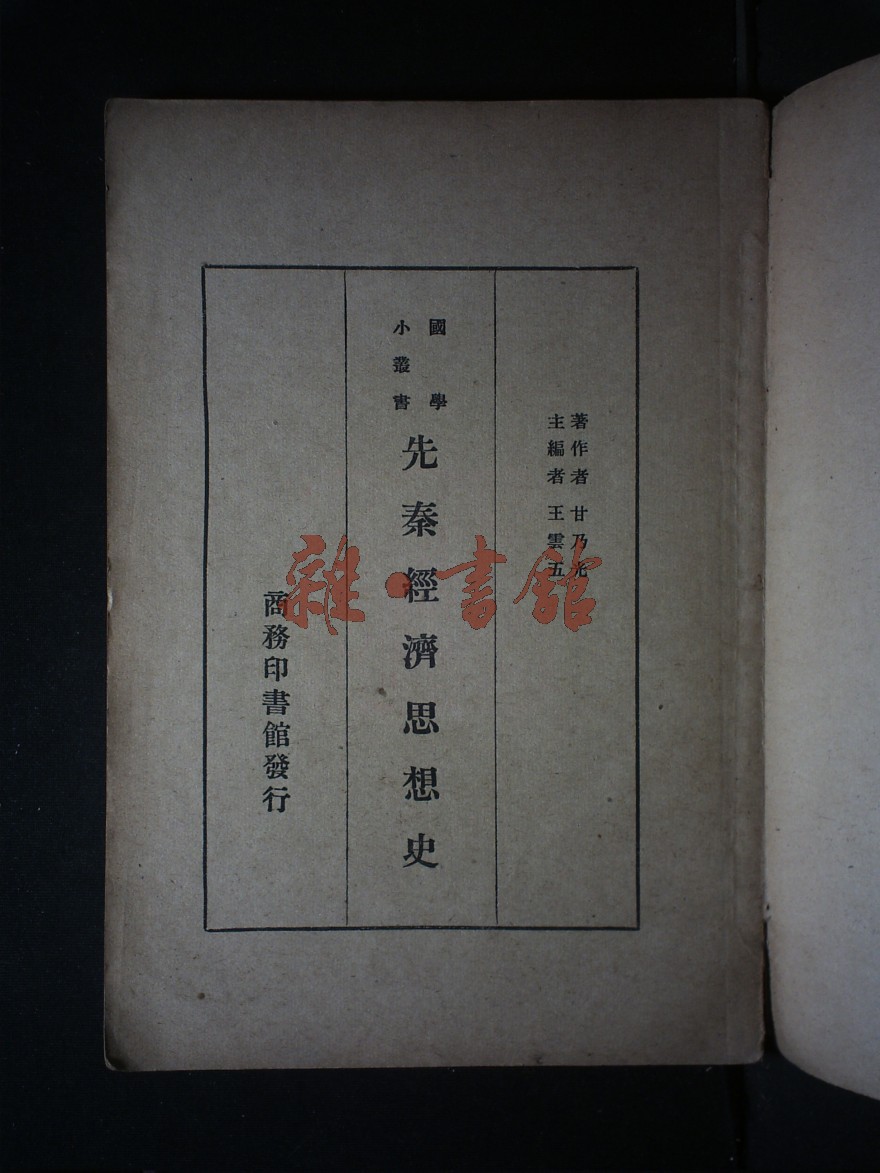 著作者 甘乃光
主編者 王雲五
國學
小叢書
先秦經濟思想史
商務印書館發行
雜·書館